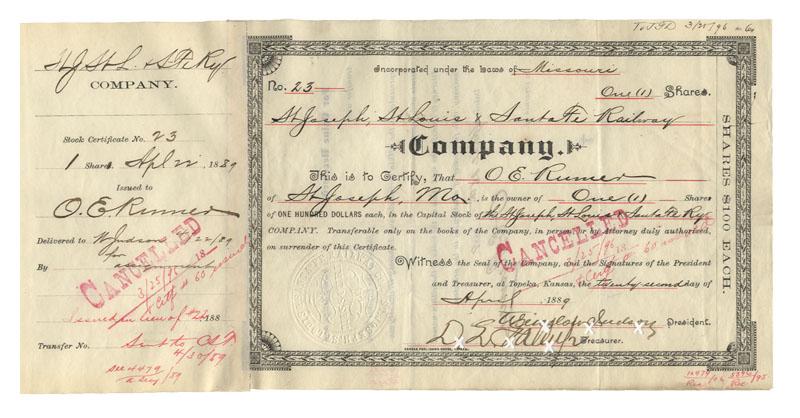 St J St L & S Fe Ry
COMPANY.
Stock Certificate No. 23
1 Share. Apl 22 1889
Issued to
O. E. Runner
Delivered to W Judson 4/22/89
for
By
CANCELLED
3/25/96 18
Ctf # 60 issued
Issued in lieu of #21 188
Transfer No.
4/30/89
see 4479
3/25/96
Incorporated under the Laws of Missouri
No. 23
One (1) Shares.
St Joseph, St Louis & Santa Fe Railway
Company.
This is to Certify, That O. E. Runner
of St Joseph, Mo. is the owner of One (1) Shares
of ONE HUNDRED DOLLARS each, in the Capital Stock of the St Joseph, St Louis & Santa Fe Ry
COMPANY. Transferable only on the books of the Company, in person or by Attorney duly authorized,
on surrender of this Certificate.
CANCELLED
3/25/96 18
Witness the Seal of the Company, and the Signatures of the President
and Treasurer, at Topeka, Kansas, the twenty second day of
April 1889
Winslow Judson President.
Treasurer.
SHARES $100 EACH.